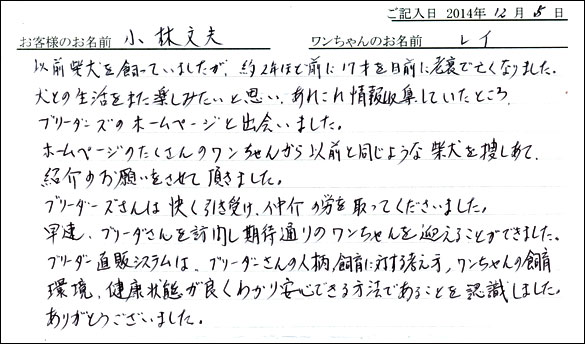 ご記入日 2014年 12月 5日
お客様のお名前 小林文夫 ワンちゃんのお名前 レイ
以前柴犬を飼っていましたが、約2年ほど前に17才を目前に老衰で亡くなりました。
犬との生活をまた楽しみたいと思い、あれこれ情報収集していたところ
ブリーダーズのホームページと出会いました。
ホームページのたくさんのワンちゃんから以前と同じような柴犬を捜しあて、
紹介のお願いをさせて頂きました。
ブリーダーズさんは快く引き受け、仲介の労を取ってくださいました。
早速、ブリーダさんを訪問し期待通りのワンちゃんを迎えることができました。
ブリーダー直販システムは、ブリーダーさんの人柄、飼育に対する考え方、ワンちゃんの飼育
環境、健康状態が良くわかり安心できる方法であることを認識しました。
ありがとうございました。